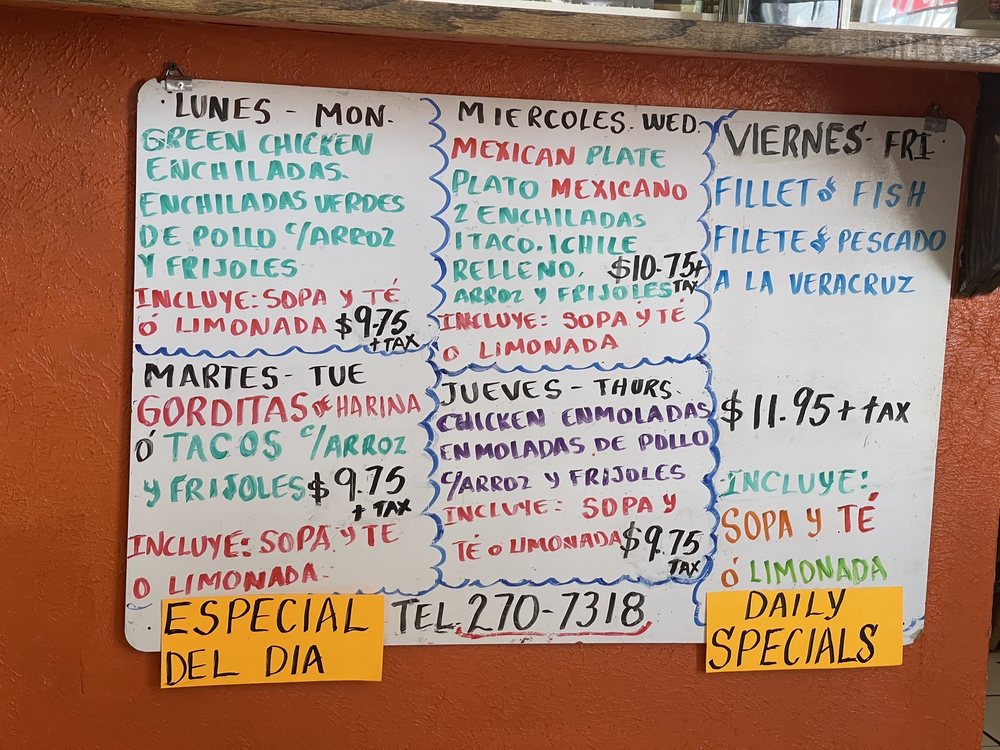 LUNES - MON.
GREEN CHICKEN
ENCHILADAS.
ENCHILADAS VERDES
DE POLLO C/ARROZ
Y FRIJOLES
INCLUYE: SOPA Y TÉ
Ó LIMONADA $9.75
+ TAX
MARTES - TUE
GORDITAS DE HARINA
Ó TACOS C/ARROZ
Y FRIJOLES $9.75
+ TAX
INCLUYE: SOPA Y TE
O LIMONADA.
MIERCOLES. WED.
MEXICAN PLATE
PLATO MEXICANO
2 ENCHILADAS
1 TACO. 1 CHILE
RELLENO. $10.75+
ARROZ Y FRIJOLES TAX
INCLUYE: SOPA Y TÉ
O LIMONADA
JUEVES - THURS.
CHICKEN ENMOLADAS
ENMOLADAS DE POLLO
C/ARROZ Y FRIJOLES
INCLUYE: SOPA Y
TÉ O LIMONADA $9.75
TAX
VIERNES - FRI.
FILLET OF FISH
FILETE DE PESCADO
A LA VERACRUZ
$11.95 + TAX
INCLUYE:
SOPA Y TÉ
Ó LIMONADA
ESPECIAL
DEL DIA
TEL. 270-7318
DAILY
SPECIALS